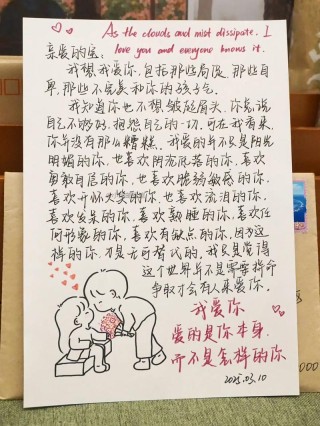 As the clouds and mist dissipate. I
love you and everyone knows it.
亲爱的宝:
我想我爱你,包括那些局促、那些自
卑,那些不完美和你的孩子气。
我知道你也不想皱起眉头,你总说
自己不够好,抱怨自己的一切,可在我看来,
你并没有那么糟糕。我爱的并不只是阳光
明媚的你,也喜欢阴流低落的你,喜欢
勇敢自信的你,也喜欢脆弱敏感的你,
喜欢开怀大笑的你,也喜欢流泪的你,
喜欢发呆的你,喜欢熟睡的你,喜欢任
何形象的你,喜欢有缺点的你,因为这
样的你,才是无可替代的,我只是觉得
这个世界并不是需要拼命
争取才会有人来爱你。
我爱你
爱的是你本身,
而不是怎样的你
2025.03.10